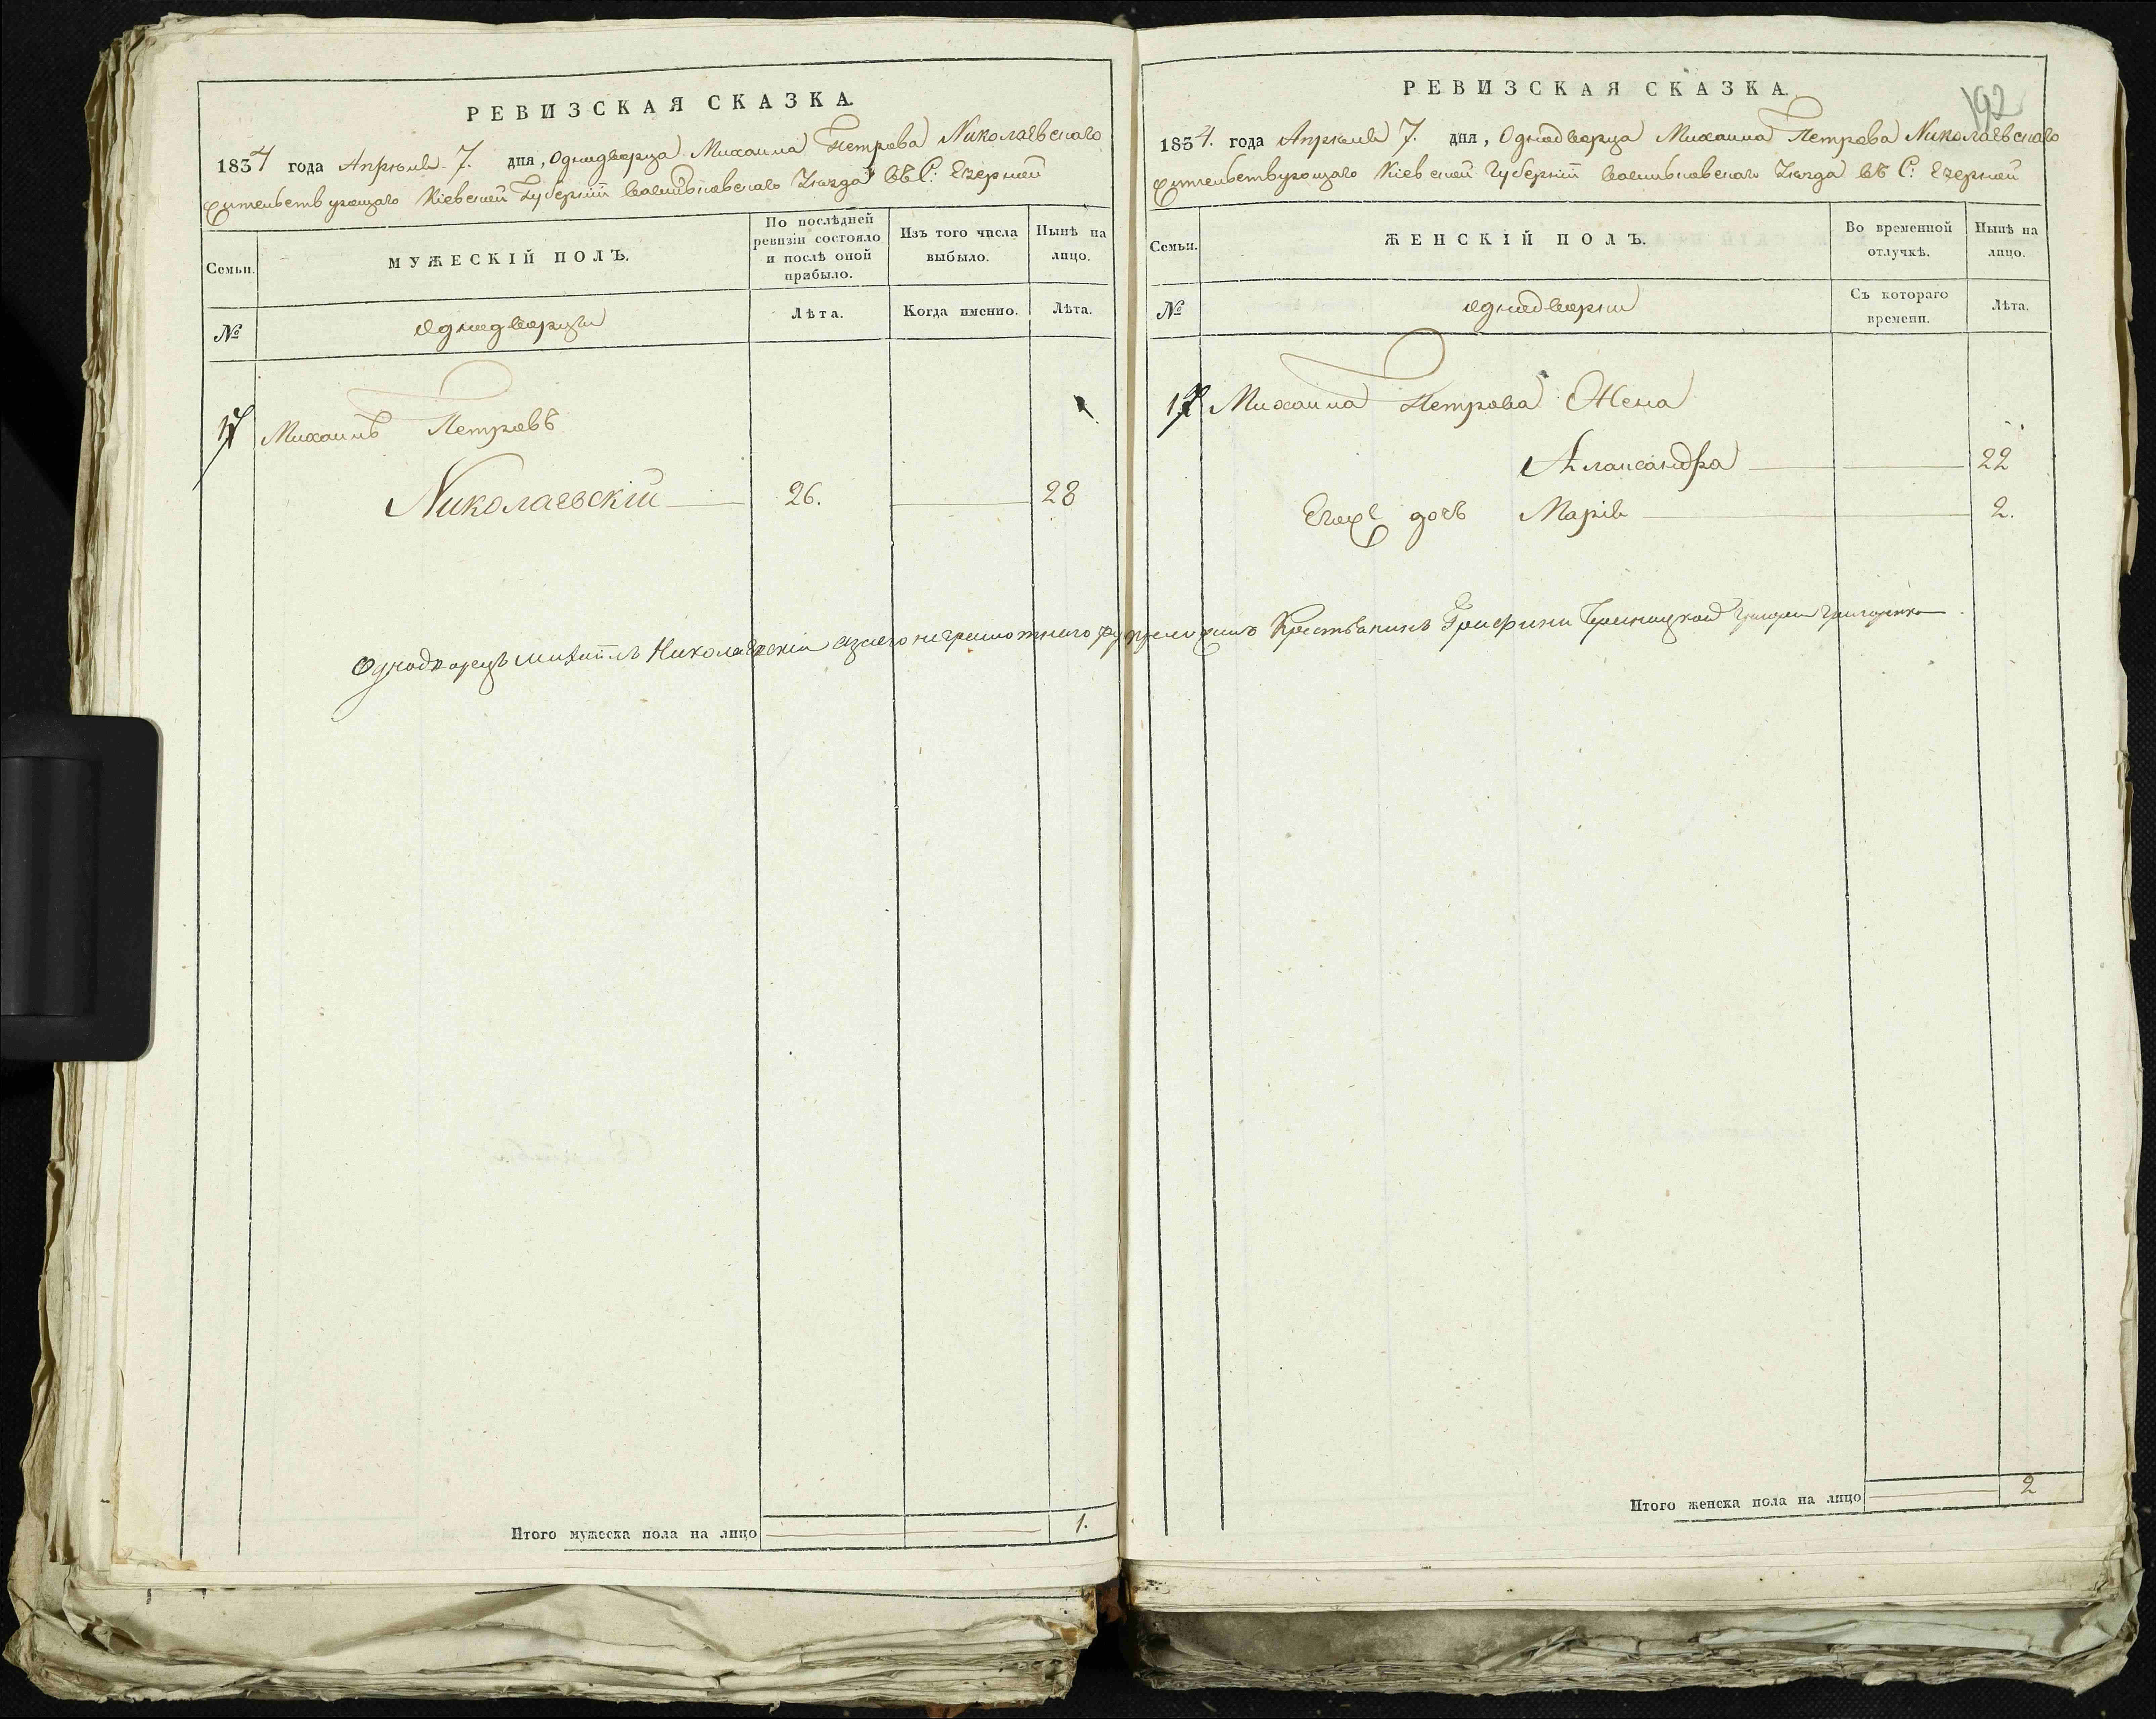 РЕВИЗСКАЯ СКАЗКА.
1834 года Апрѣля 7. дня, Однодворца Михаила Петрова Николаевскаго
Жительствующаго Кіевской Губерніи Васильковскаго Уѣзда въ С: Езерной
Семьи.
МУЖЕСКІЙ ПОЛЪ.
По послѣдней ревизіи состояло и послѣ оной прибыло.
Изъ того числа выбыло.
Нынѣ на лицо.
№
Однодворцы
Лѣта.
Когда именно.
Лѣта.
Михаилъ Петровъ
Николаевскій 26. 28
Однодворецъ Михаилъ Николаевскій
Итого мужеска пола на лицо 1.
РЕВИЗСКАЯ СКАЗКА.
192
1834. года Апрѣля 7. дня, Однодворца Михаила Петрова Николаевскаго
Жительствующаго Кіевской Губерніи Васильковскаго Уѣзда въ С: Езерной
Семьи.
ЖЕНСКІЙ ПОЛЪ.
Во временной отлучкѣ.
Нынѣ на лицо.
№
Однодворки
Съ котораго времени.
Лѣта.
Михаила Петрова Жена
Алаксандра 22
Егоже дочь Марія 2.
Итого женска пола на лицо 2